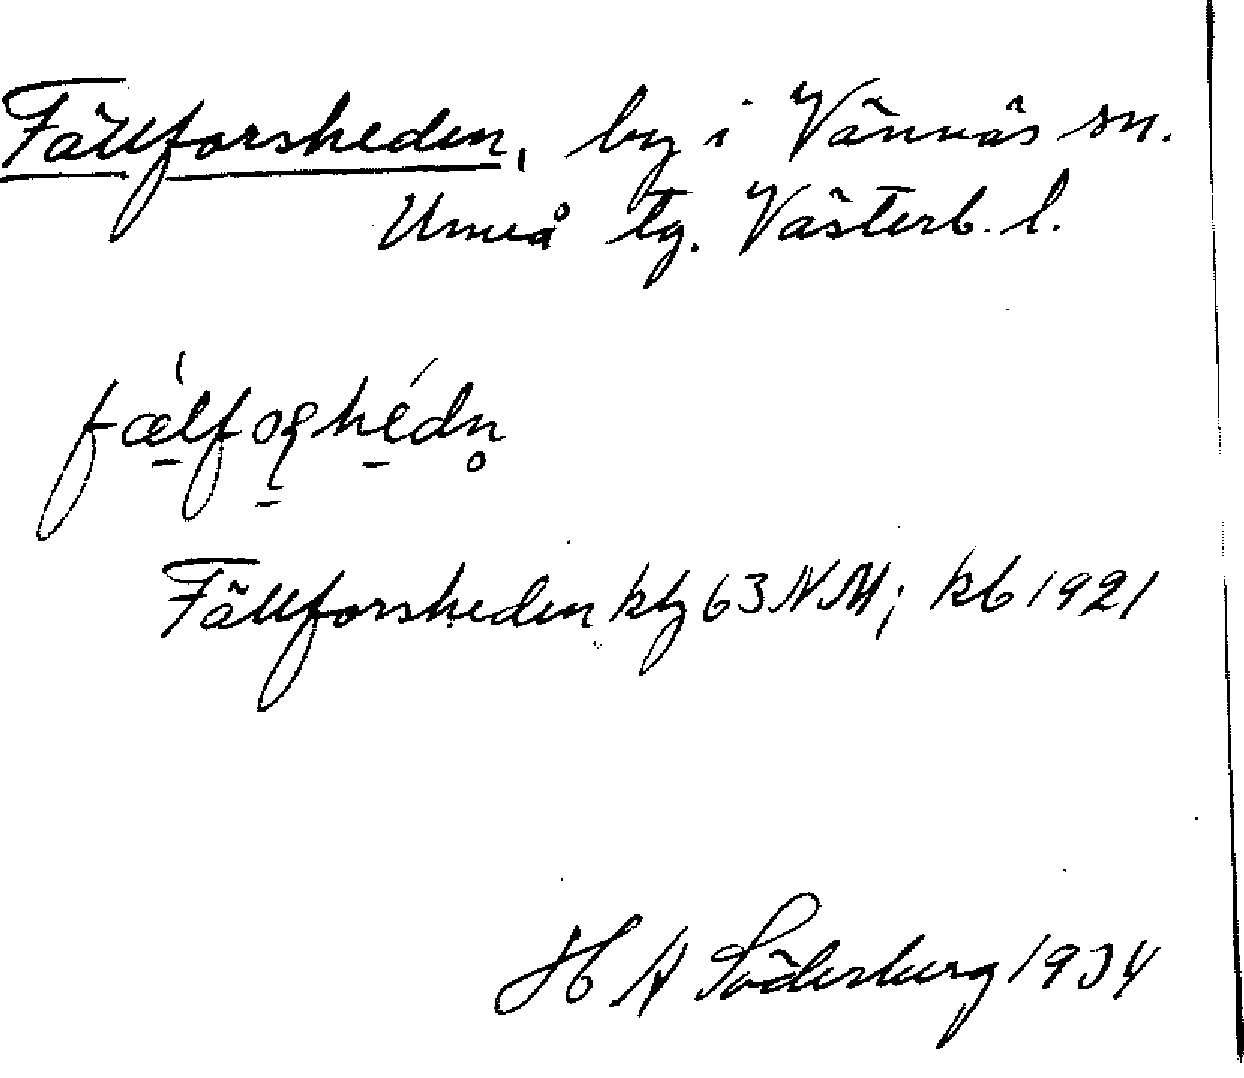 Fällforsheden, by i Vännäs sn.
Umeå tg. Västerb. l.
Fällforsheden kbg 63 NM; kb 1921
H A Söderberg 1934